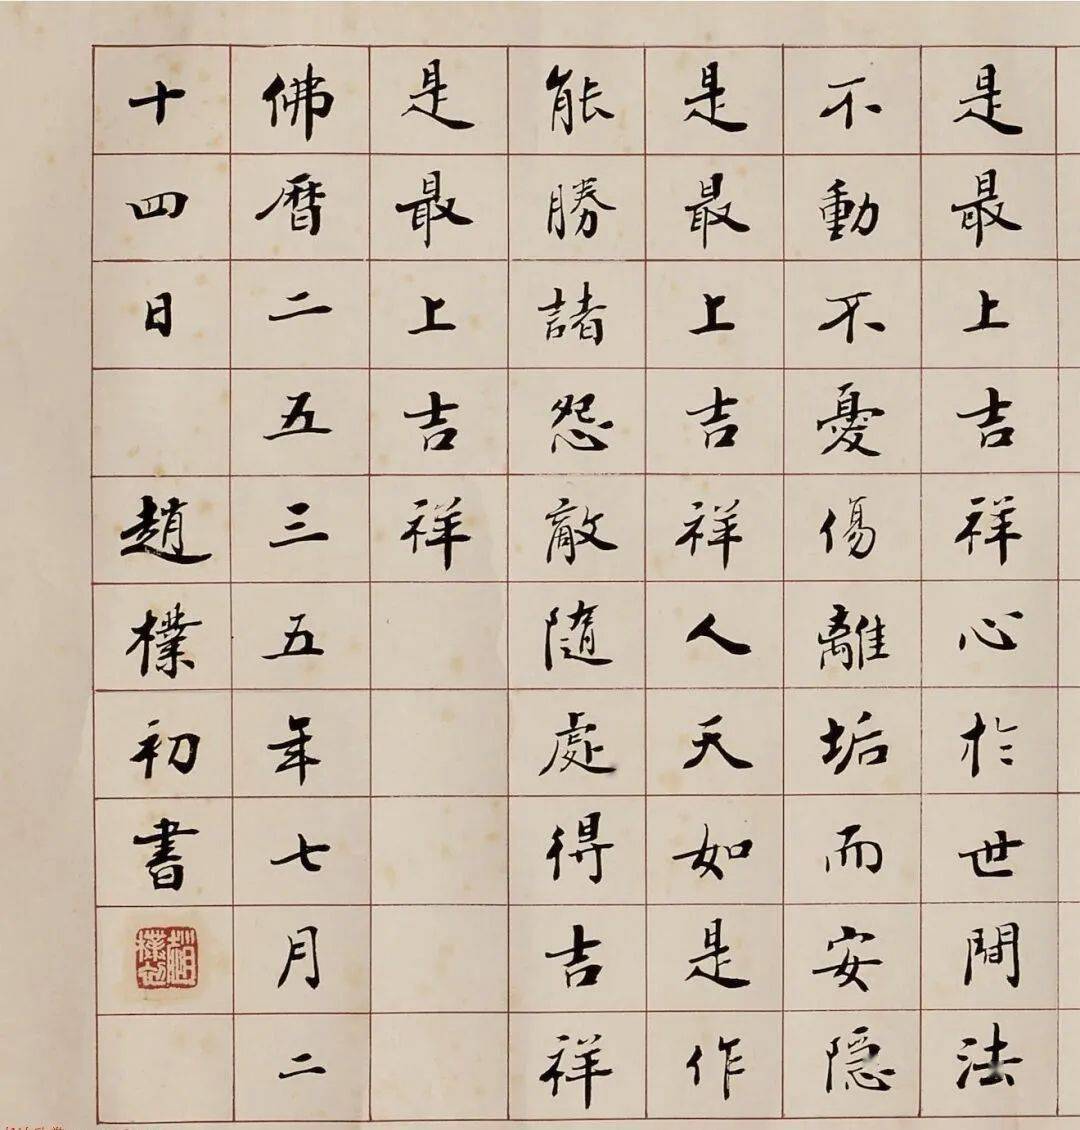 是最上吉祥心於世間法
不動不憂傷離垢而安隱
是最上吉祥人天如是作
能勝諸怨敵隨處得吉祥
是最上吉祥
佛曆二五三五年七月二
十四日 趙樸初書
趙樸初